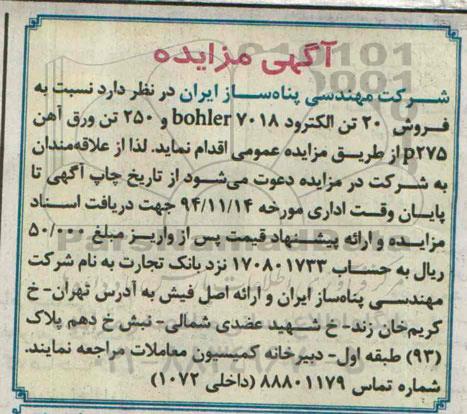 آگهی مزایده
شرکت مهندسی پناه‌ساز ایران در نظر دارد نسبت به
فروش ۲۰ تن الکترود bohler ۷۰۱۸ و ۲۵۰ تن ورق آهن
p۲۷۵ از طریق مزایده عمومی اقدام نماید. لذا از علاقه‌مندان
به شرکت در مزایده دعوت می‌شود از تاریخ چاپ آگهی تا
پایان وقت اداری مورخه ۹۴/۱۱/۱۴ جهت دریافت اسناد
مزایده و ارائه پیشنهاد قیمت پس از واریز مبلغ ۵۰/۰۰۰
ریال به حساب ۱۷۰۸۰۱۷۳۳ نزد بانک تجارت به نام شرکت
مهندسی پناه‌ساز ایران و ارائه اصل فیش به آدرس تهران- خ
کریم‌خان زند- خ شهید عضدی شمالی- نبش خ دهم پلاک
(۹۳) طبقه اول- دبیرخانه کمیسیون معاملات مراجعه نمایند.
شماره تماس ۸۸۸۰۱۱۷۹ (داخلی ۱۰۷۲)